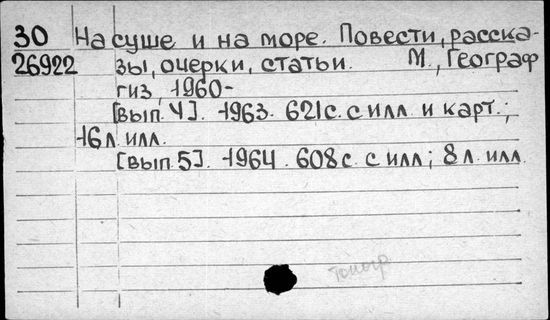 30 На суше и на море. Повести, расска-
26922 зы, очерки, статьи. М., Географ
гиз, 1960-
[вып. 4]. -1963. 621с. с илл. и карт.;
16 л. илл.
[вып. 5]. -1964. 608 с. с илл; 8 л. илл.
топогр